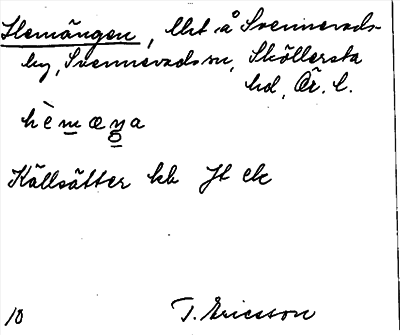 Hemängen, llht å Svennevads-
by, Svennevads sn, Sköllersta
hd, Ör. l.
hèmæŋa
Källsätter kb Jt ek
10 T. Ericsson